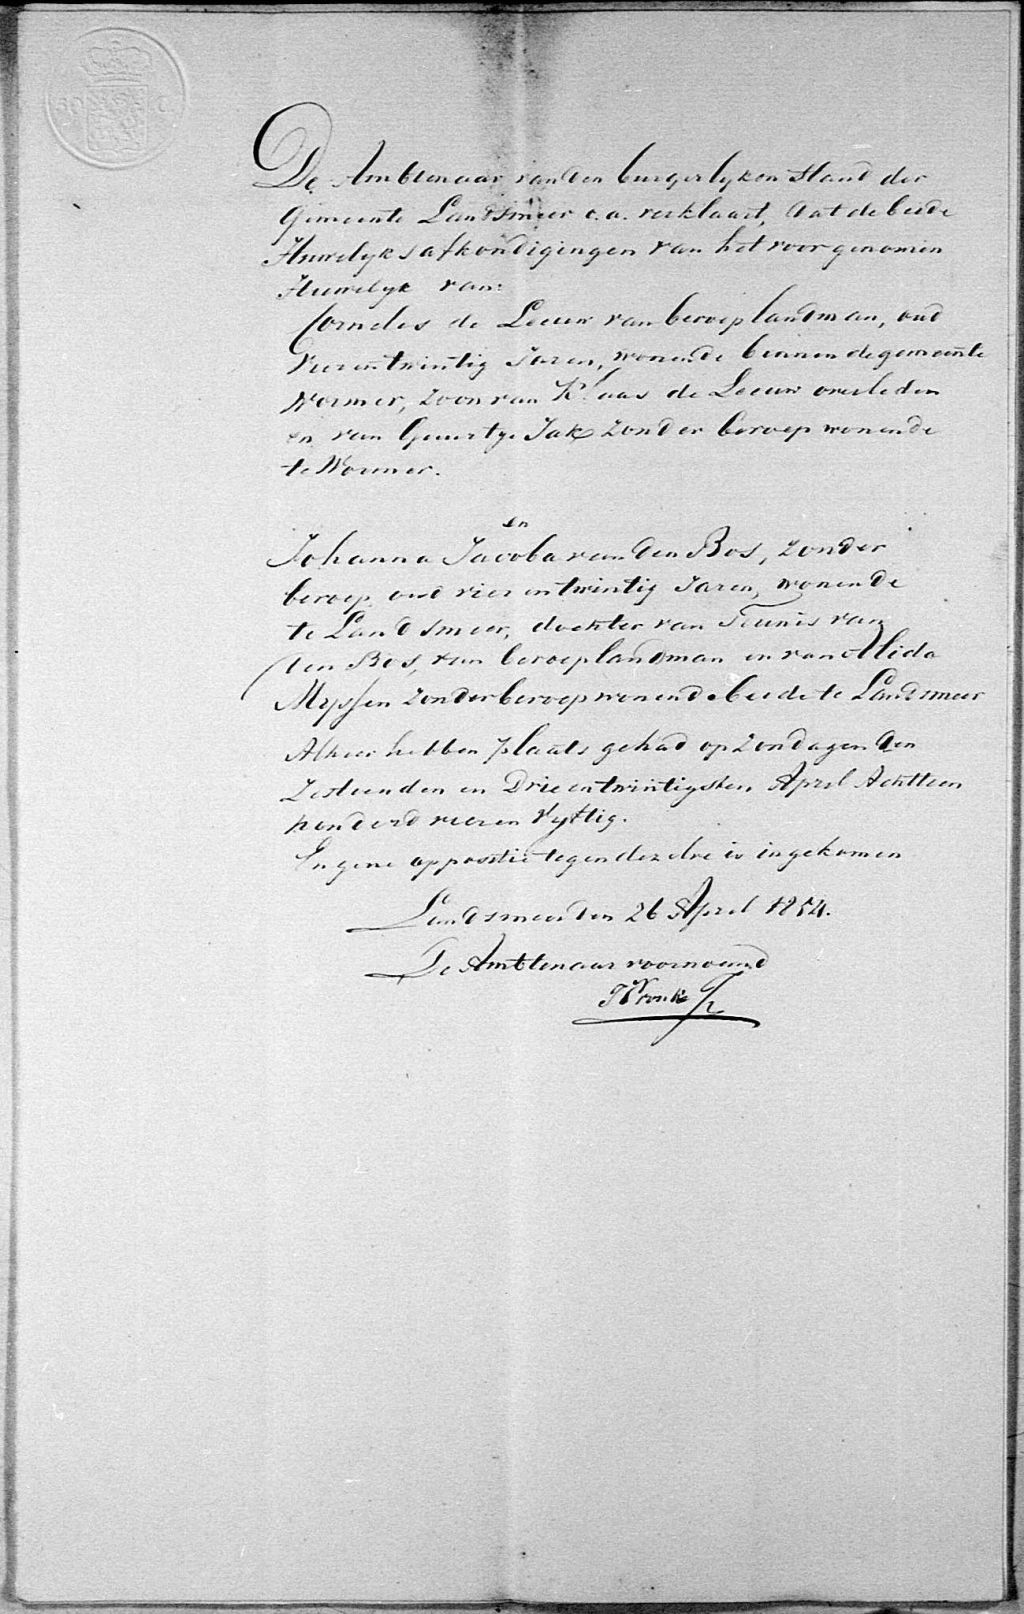 De Ambtenaar van den burgerlyken Stand der
Gemeente Landsmeer c.a. verklaart, dat de beide
Huwelyks afkondigingen van het voorgenomen
Huwelyk van:
Cornelis de Leeuw van beroep landman, oud
vier en twintig Jaren, wonende binnen de gemeente
Wormer, zoon van Klaas de Leeuw overleden
en van Geertje Jak zonder beroep wonende
te Wormer.
en
Johanna Jacoba van den Bos, zonder
beroep oud vier en twintig Jaren, wonende
te Landsmeer, dochter van Teunis van
den Bos, van beroep landman en van Alida
Myssen zonder beroep wonende beide te Landsmeer
Alhier hebben plaats gehad op zondagen den
Zestienden en Drie en twintigsten April Achttien
honderd vier en vyftig.
En gene oppositie tegen dezelve is ingekomen
Landsmeer den 26 April 1854.
De Ambtenaar voornoemd